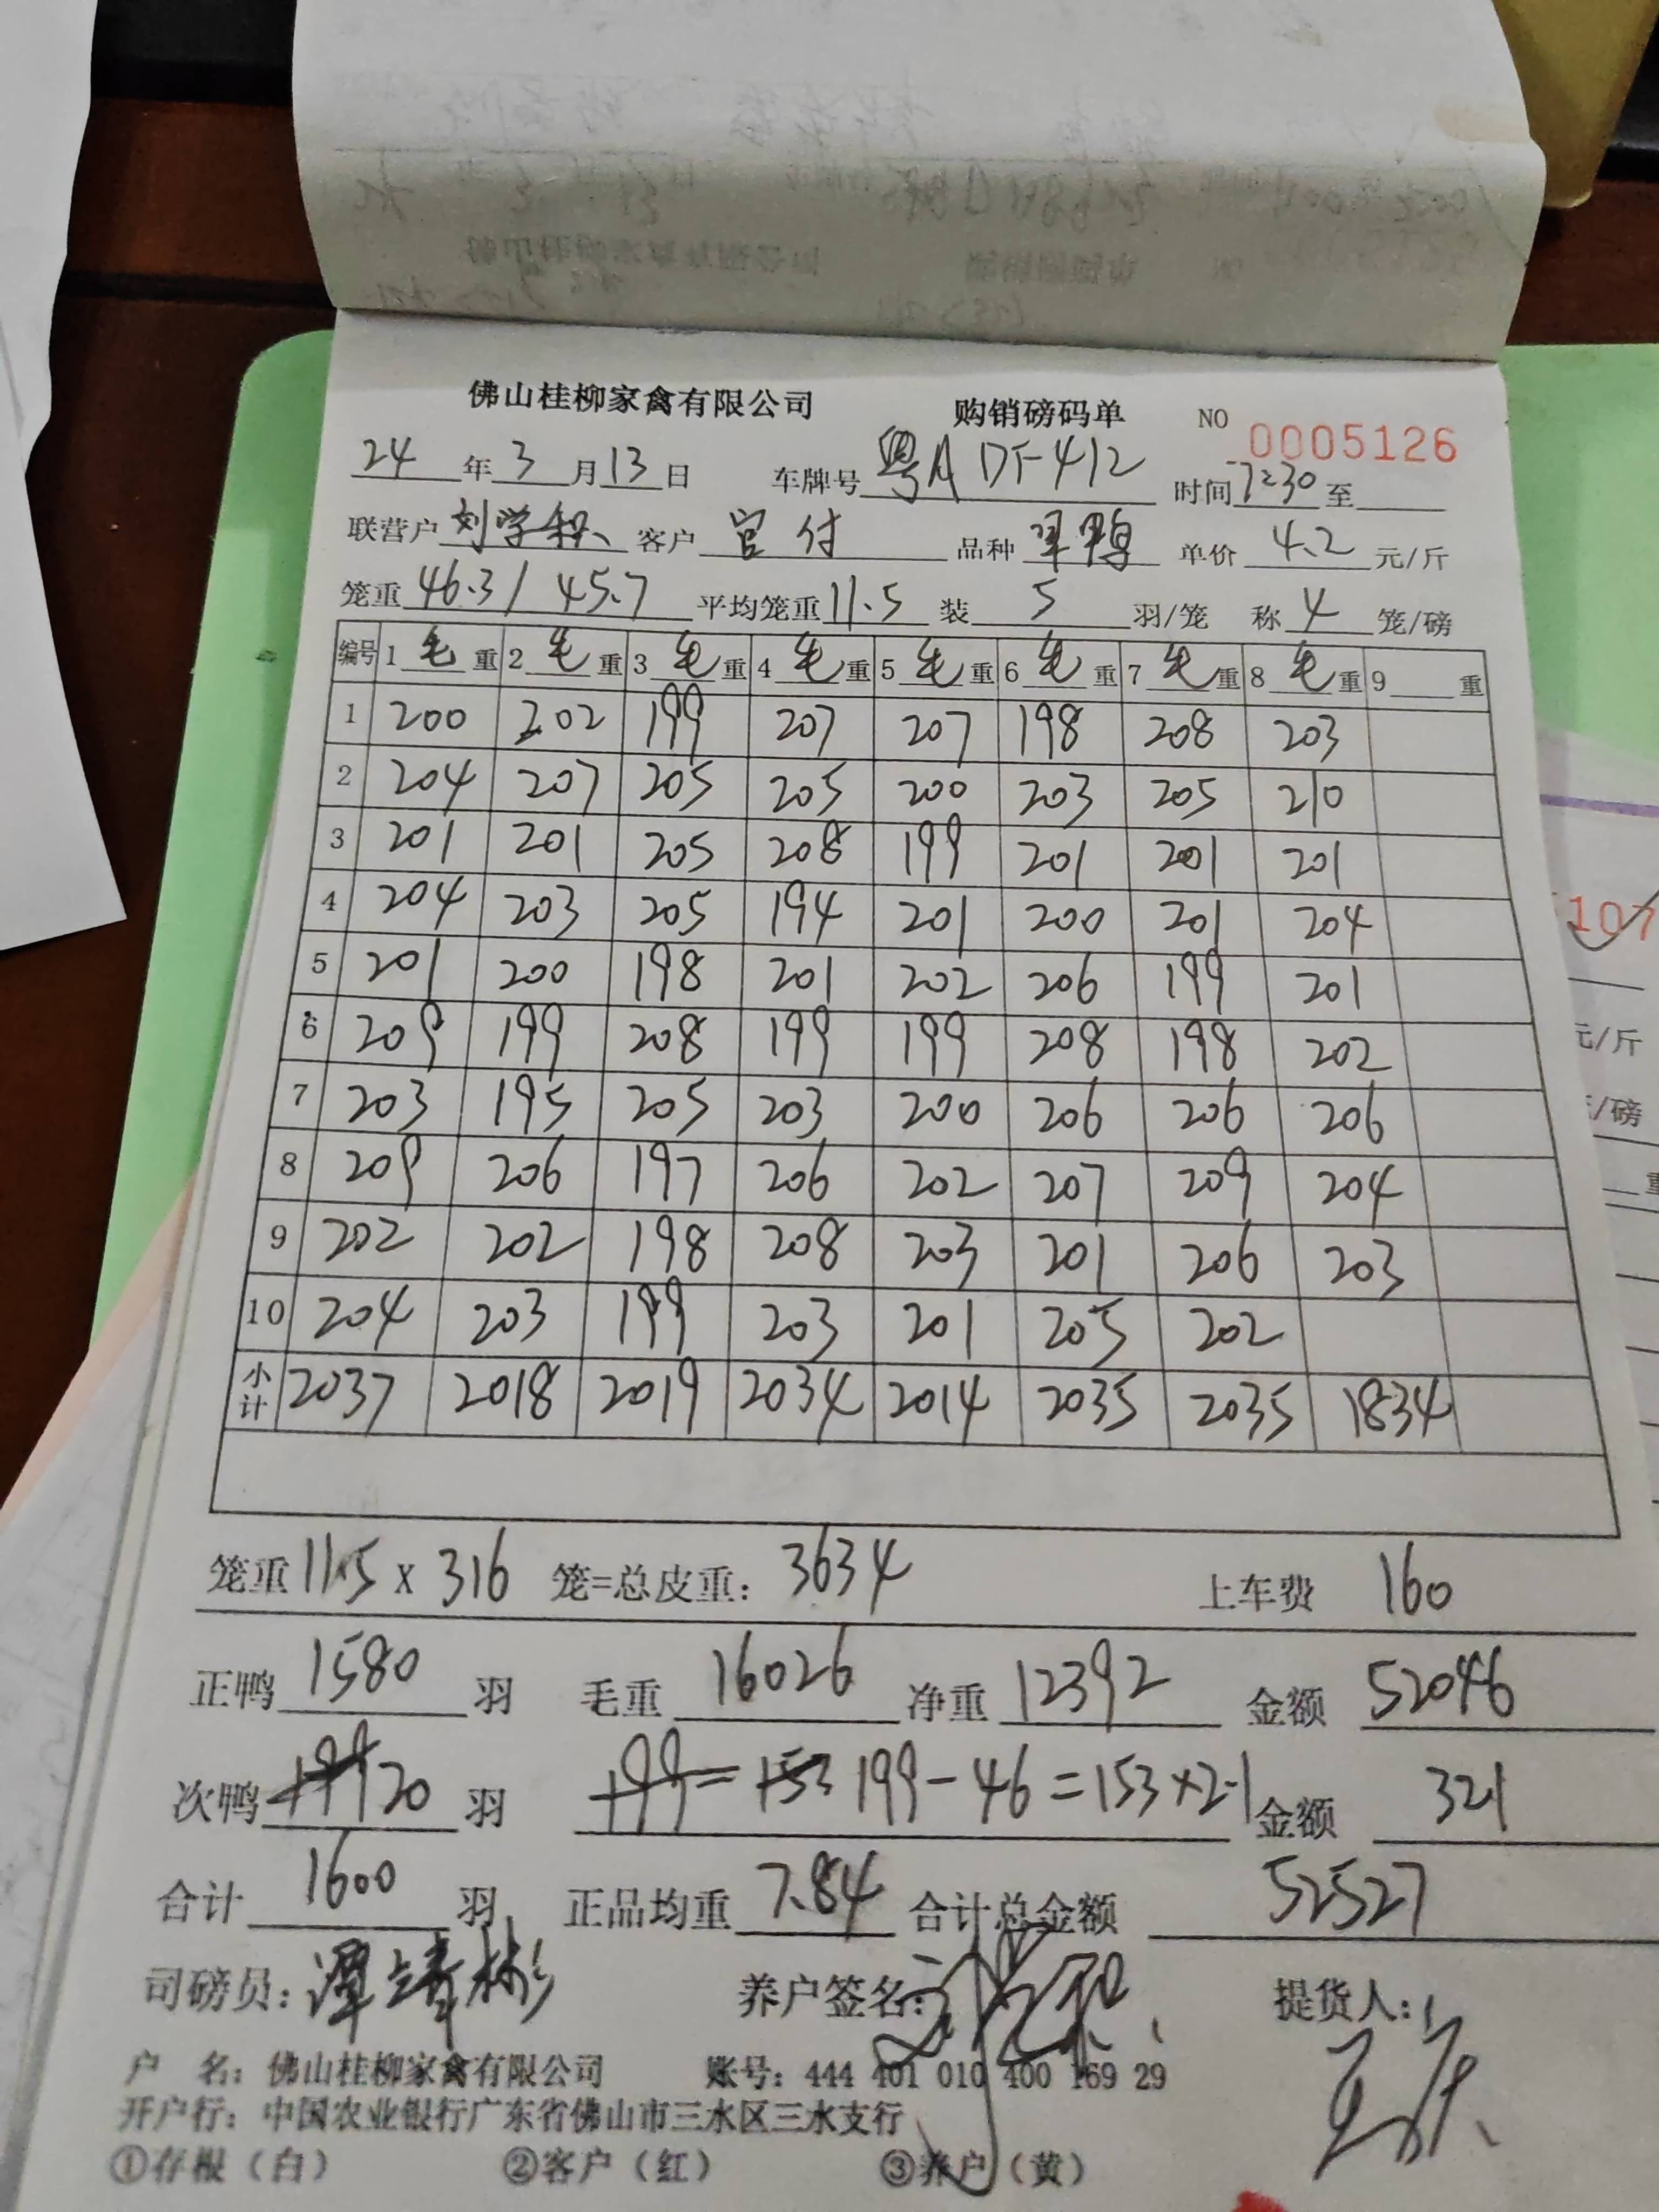 佛山桂柳家禽有限公司 购销磅码单 NO 0005126
24年3月13日 车牌号 粤A DF412 时间 7:30 至
联营户 刘学积 客户 官付 品种 单价 4.2 元/斤
笼重 46.3/45.7 平均笼重 11.5 装 5 羽/笼 称 4 笼/磅
编号 1 毛 重 2 毛 重 3 毛 重 4 毛 重 5 毛 重 6 毛 重 7 毛 重 8 毛 重 9 重
1 200 202 199 207 207 198 208 203
2 204 207 205 205 200 203 205 210
3 201 201 205 208 199 201 201 201
4 204 203 205 194 201 200 201 204
5 201 200 198 201 202 206 199 201
6 209 199 208 199 199 208 198 202
7 203 195 205 203 200 206 206 206
8 209 206 197 206 202 207 209 204
9 202 202 198 208 203 201 206 203
10 204 203 199 203 201 205 202
小计 2037 2018 2019 2034 2014 2035 2035 1834
笼重 11.5 x 316 笼=总皮重: 3634 上车费 160
正鸭 1580 羽 毛重 16026 净重 12392 金额 52046
次鸭 199 20 羽 199= 153 199-46=153×2.1 金额 321
合计 1600 羽 正品均重 7.84 合计总金额 52527
司磅员: 谭靖彬 养户签名: 提货人:
户 名: 佛山桂柳家禽有限公司 账号: 444 401 010 400 169 29
开户行: 中国农业银行广东省佛山市三水区三水支行
①存根（白） ②客户（红） ③养户（黄）
107
元/斤
/磅
重